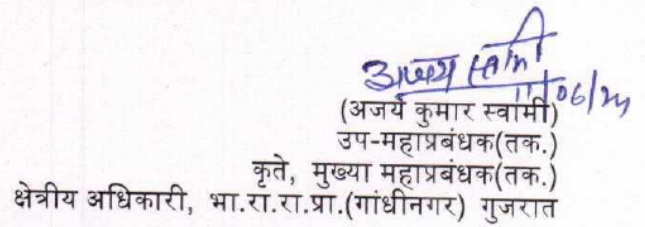 अजय स्वामी
11/06/24
(अजय कुमार स्वामी)
उप-महाप्रबंधक(तक.)
कृते, मुख्या महाप्रबंधक(तक.)
क्षेत्रीय अधिकारी, भा.रा.रा.प्रा.(गांधीनगर) गुजरात